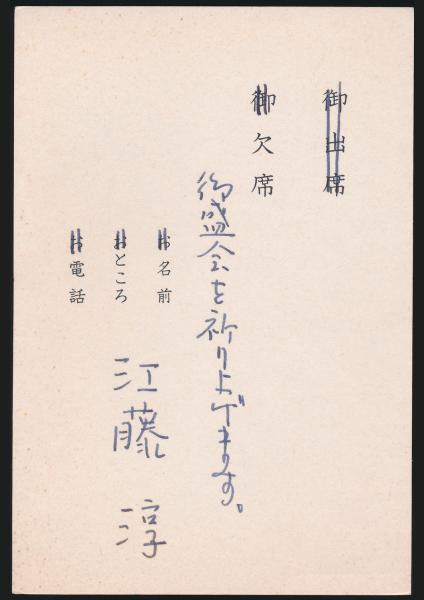 御出席
御欠席
御盛会を祈り上げます。
お名前
おところ
お電話
江藤淳